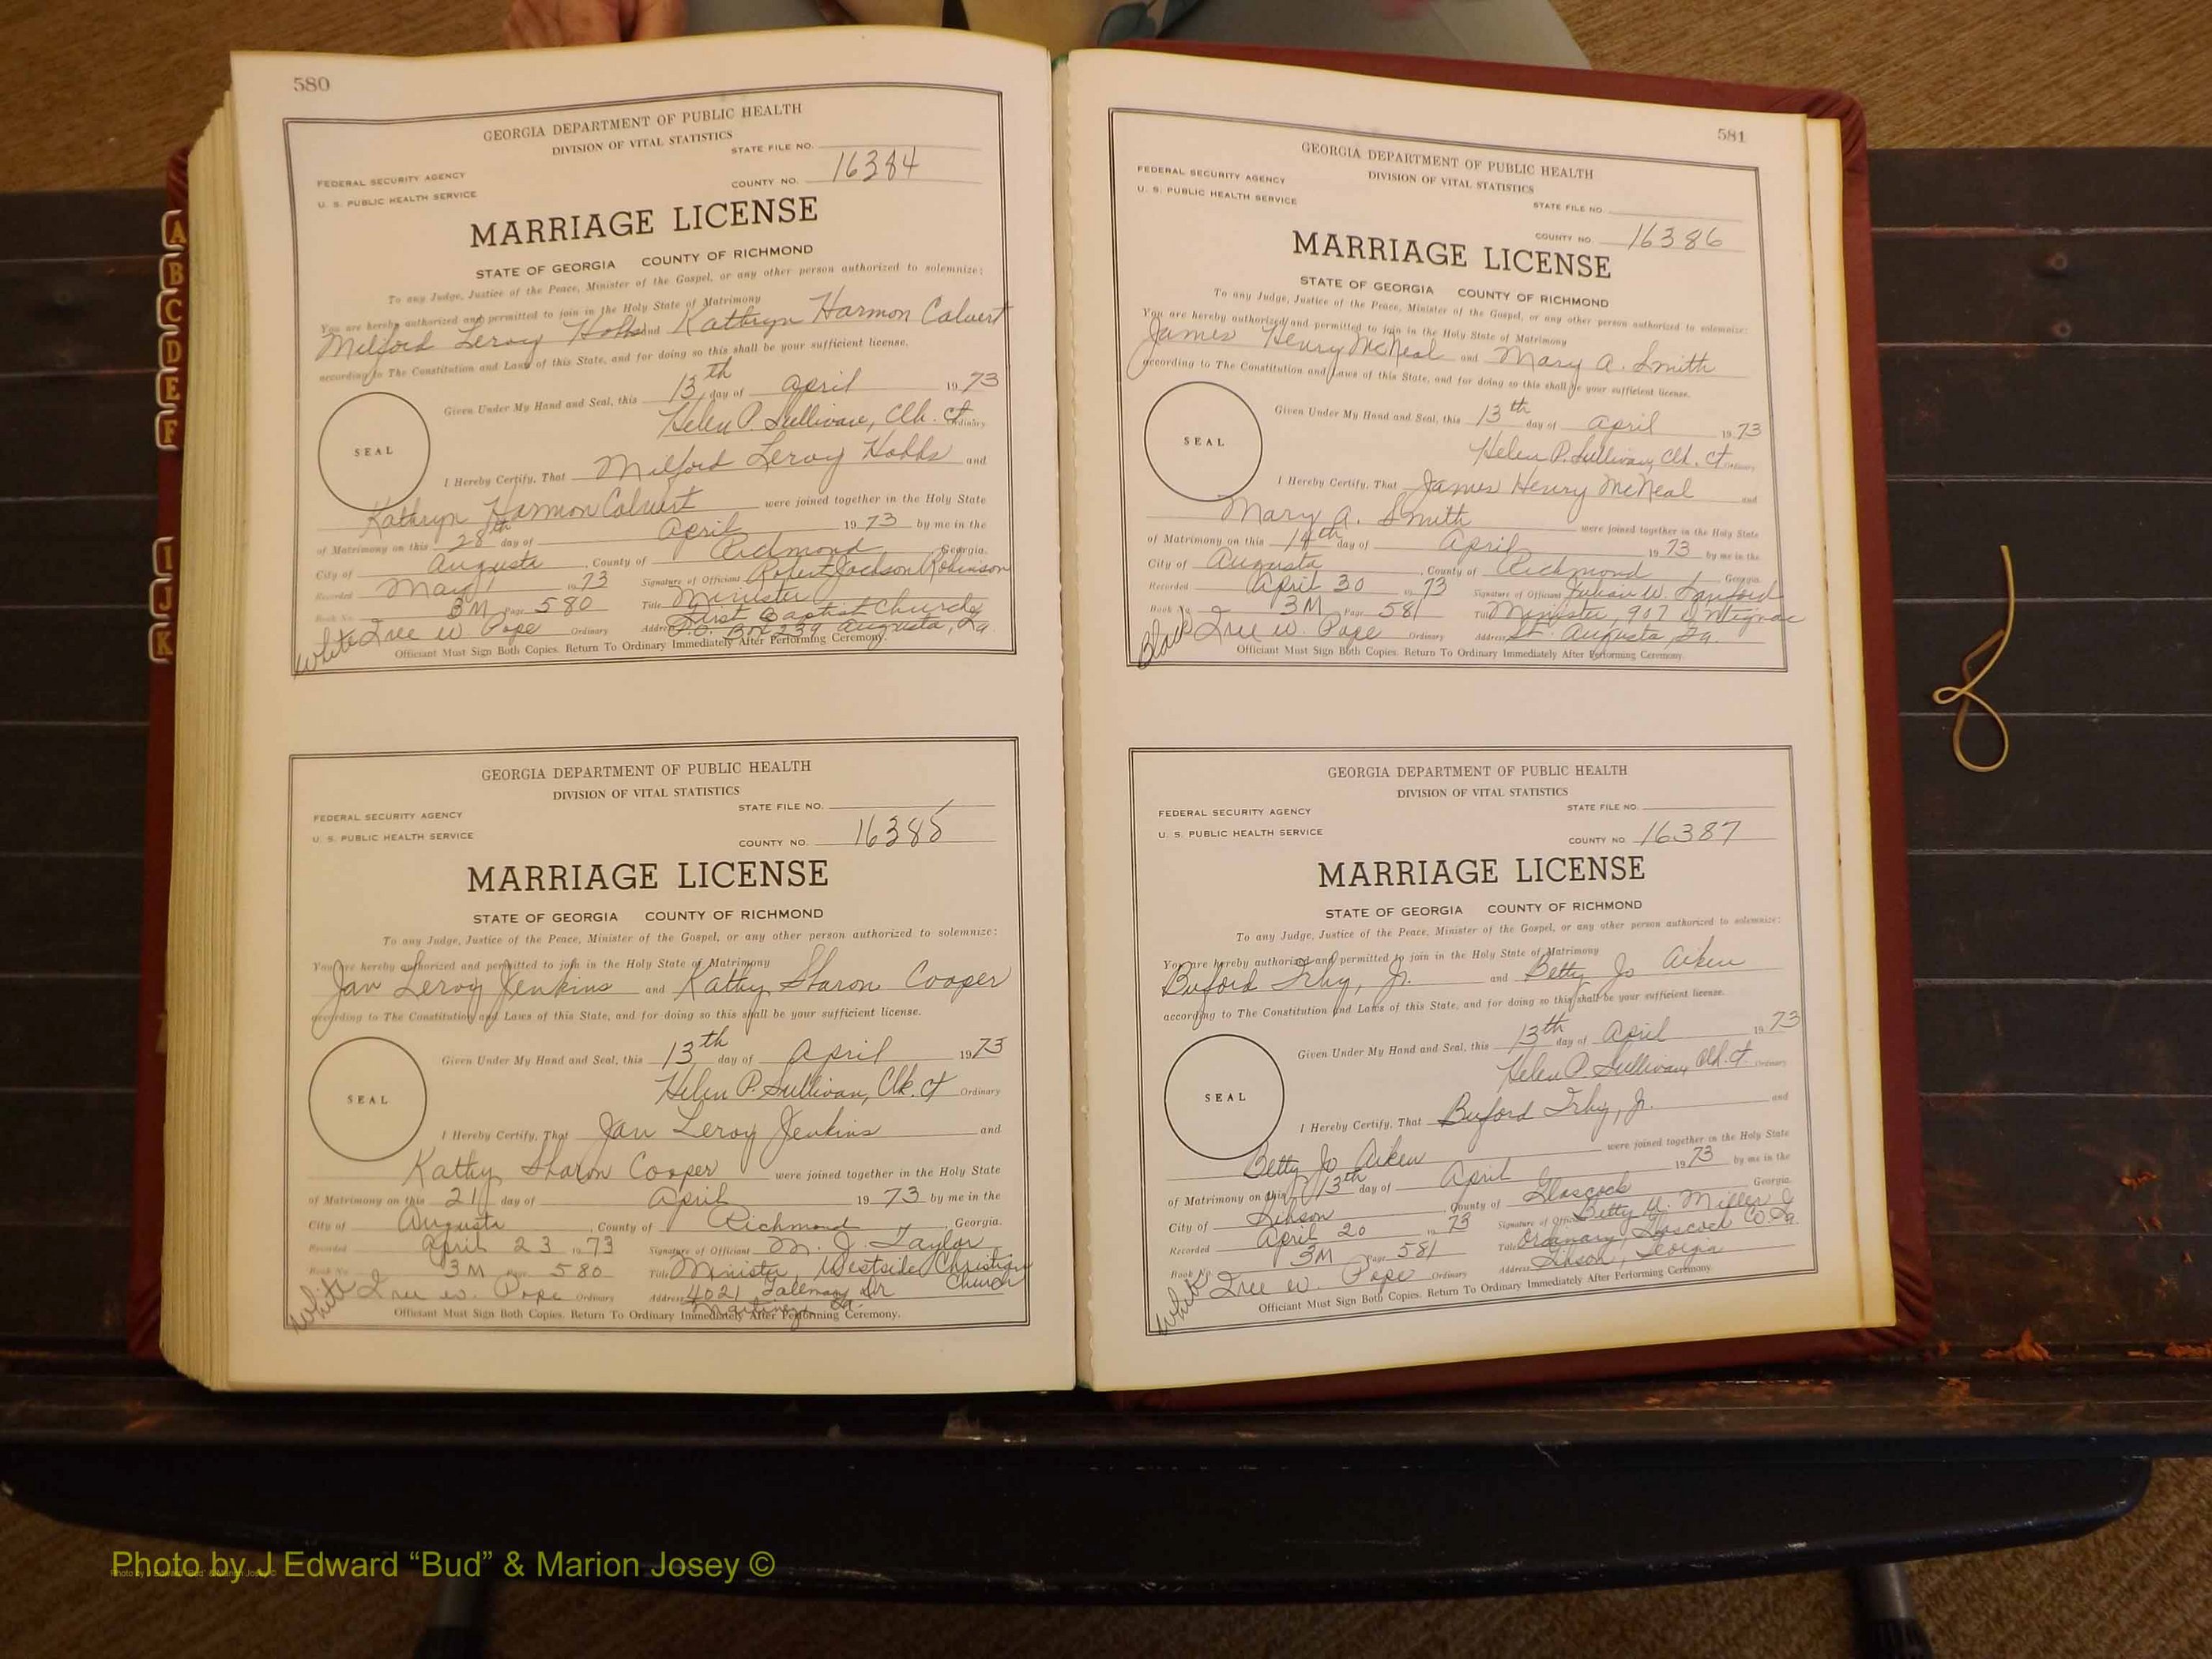 580
GEORGIA DEPARTMENT OF PUBLIC HEALTH
DIVISION OF VITAL STATISTICS
STATE FILE NO.
FEDERAL SECURITY AGENCY
U. S. PUBLIC HEALTH SERVICE
COUNTY NO. 16384
MARRIAGE LICENSE
STATE OF GEORGIA COUNTY OF RICHMOND
To any Judge, Justice of the Peace, Minister of the Gospel, or any other person authorized to solemnize:
You are hereby authorized and permitted to join in the Holy State of Matrimony
Milford Leroy Hobbs and Kathryn Harmon Calvert
according to The Constitution and Laws of this State, and for doing so this shall be your sufficient license.
Given Under My Hand and Seal, this 13th day of April 1973
Helen P. Sullivan, Clk. Ct. Ordinary
SEAL
I Hereby Certify, That Milford Leroy Hobbs and
Kathryn Harmon Calvert were joined together in the Holy State
of Matrimony on this 28th day of April 1973 by me in the
City of Augusta, County of Richmond Georgia.
Recorded May 1 1973 Signature of Officiant Robert Jackson Robinson
Book No. 3M Page 580 Title Minister
First Baptist Church
White Iree W. Pope Ordinary Address P.O. Box 239 Augusta, Ga.
Officiant Must Sign Both Copies. Return To Ordinary Immediately After Performing Ceremony.
GEORGIA DEPARTMENT OF PUBLIC HEALTH
DIVISION OF VITAL STATISTICS
STATE FILE NO.
FEDERAL SECURITY AGENCY
U. S. PUBLIC HEALTH SERVICE
COUNTY NO. 16385
MARRIAGE LICENSE
STATE OF GEORGIA COUNTY OF RICHMOND
To any Judge, Justice of the Peace, Minister of the Gospel, or any other person authorized to solemnize:
You are hereby authorized and permitted to join in the Holy State of Matrimony
Jan Leroy Jenkins and Kathy Sharon Cooper
according to The Constitution and Laws of this State, and for doing so this shall be your sufficient license.
Given Under My Hand and Seal, this 13th day of April 1973
Helen P. Sullivan, Clk. Ct Ordinary
SEAL
I Hereby Certify, That Jan Leroy Jenkins and
Kathy Sharon Cooper were joined together in the Holy State
of Matrimony on this 21 day of April 1973 by me in the
City of Augusta, County of Richmond, Georgia.
Recorded April 23 1973 Signature of Officiant M. J. Taylor
Book No. 3M Page 580 Title Minister, Westside Christian Church
White Iree W. Pope Ordinary Address 4021 Dr
Martinez, Ga.
Officiant Must Sign Both Copies. Return To Ordinary Immediately After Performing Ceremony.
581
GEORGIA DEPARTMENT OF PUBLIC HEALTH
DIVISION OF VITAL STATISTICS
STATE FILE NO.
FEDERAL SECURITY AGENCY
U. S. PUBLIC HEALTH SERVICE
COUNTY NO. 16386
MARRIAGE LICENSE
STATE OF GEORGIA COUNTY OF RICHMOND
To any Judge, Justice of the Peace, Minister of the Gospel, or any other person authorized to solemnize:
You are hereby authorized and permitted to join in the Holy State of Matrimony
James Henry McNeal and Mary A. Smith
according to The Constitution and Laws of this State, and for doing so this shall be your sufficient license.
Given Under My Hand and Seal, this 13th day of April 1973
Helen P. Sullivan, Clk. Ct Ordinary
SEAL
I Hereby Certify, That James Henry McNeal and
Mary A. Smith were joined together in the Holy State
of Matrimony on this 14th day of April 1973 by me in the
City of Augusta, County of Richmond, Georgia.
Recorded April 30 1973 Signature of Officiant Julian W.
Book No. 3M Page 581 Title Minister, 907
Black Iree W. Pope Ordinary Address St. Augusta, Ga.
Officiant Must Sign Both Copies. Return To Ordinary Immediately After Performing Ceremony.
GEORGIA DEPARTMENT OF PUBLIC HEALTH
DIVISION OF VITAL STATISTICS
STATE FILE NO.
FEDERAL SECURITY AGENCY
U. S. PUBLIC HEALTH SERVICE
COUNTY NO 16387
MARRIAGE LICENSE
STATE OF GEORGIA COUNTY OF RICHMOND
To any Judge, Justice of the Peace, Minister of the Gospel, or any other person authorized to solemnize:
You are hereby authorized and permitted to join in the Holy State of Matrimony
Buford Irby, Jr. and Betty Jo Aiken
according to The Constitution and Laws of this State, and for doing so this shall be your sufficient license.
Given Under My Hand and Seal, this 13th day of April 1973
Helen P. Sullivan, Clk. Ct. Ordinary
SEAL
I Hereby Certify, That Buford Irby, Jr. and
Betty Jo Aiken were joined together in the Holy State
of Matrimony on this 13th day of April 1973 by me in the
City of Gibson, County of Glascock Georgia.
Recorded April 20 1973 Signature of Officiant Betty U. Miller
Book No. 3M Page 581 Title Ordinary, Glascock Co. Ga.
White Iree W. Pope Ordinary Address Gibson, Georgia
Officiant Must Sign Both Copies. Return To Ordinary Immediately After Performing Ceremony.
A
B
C
D
E
F
I
J
K
Photo by J Edward “Bud” & Marion Josey ©
Photo by J Edward "Bud" & Marion Josey ©